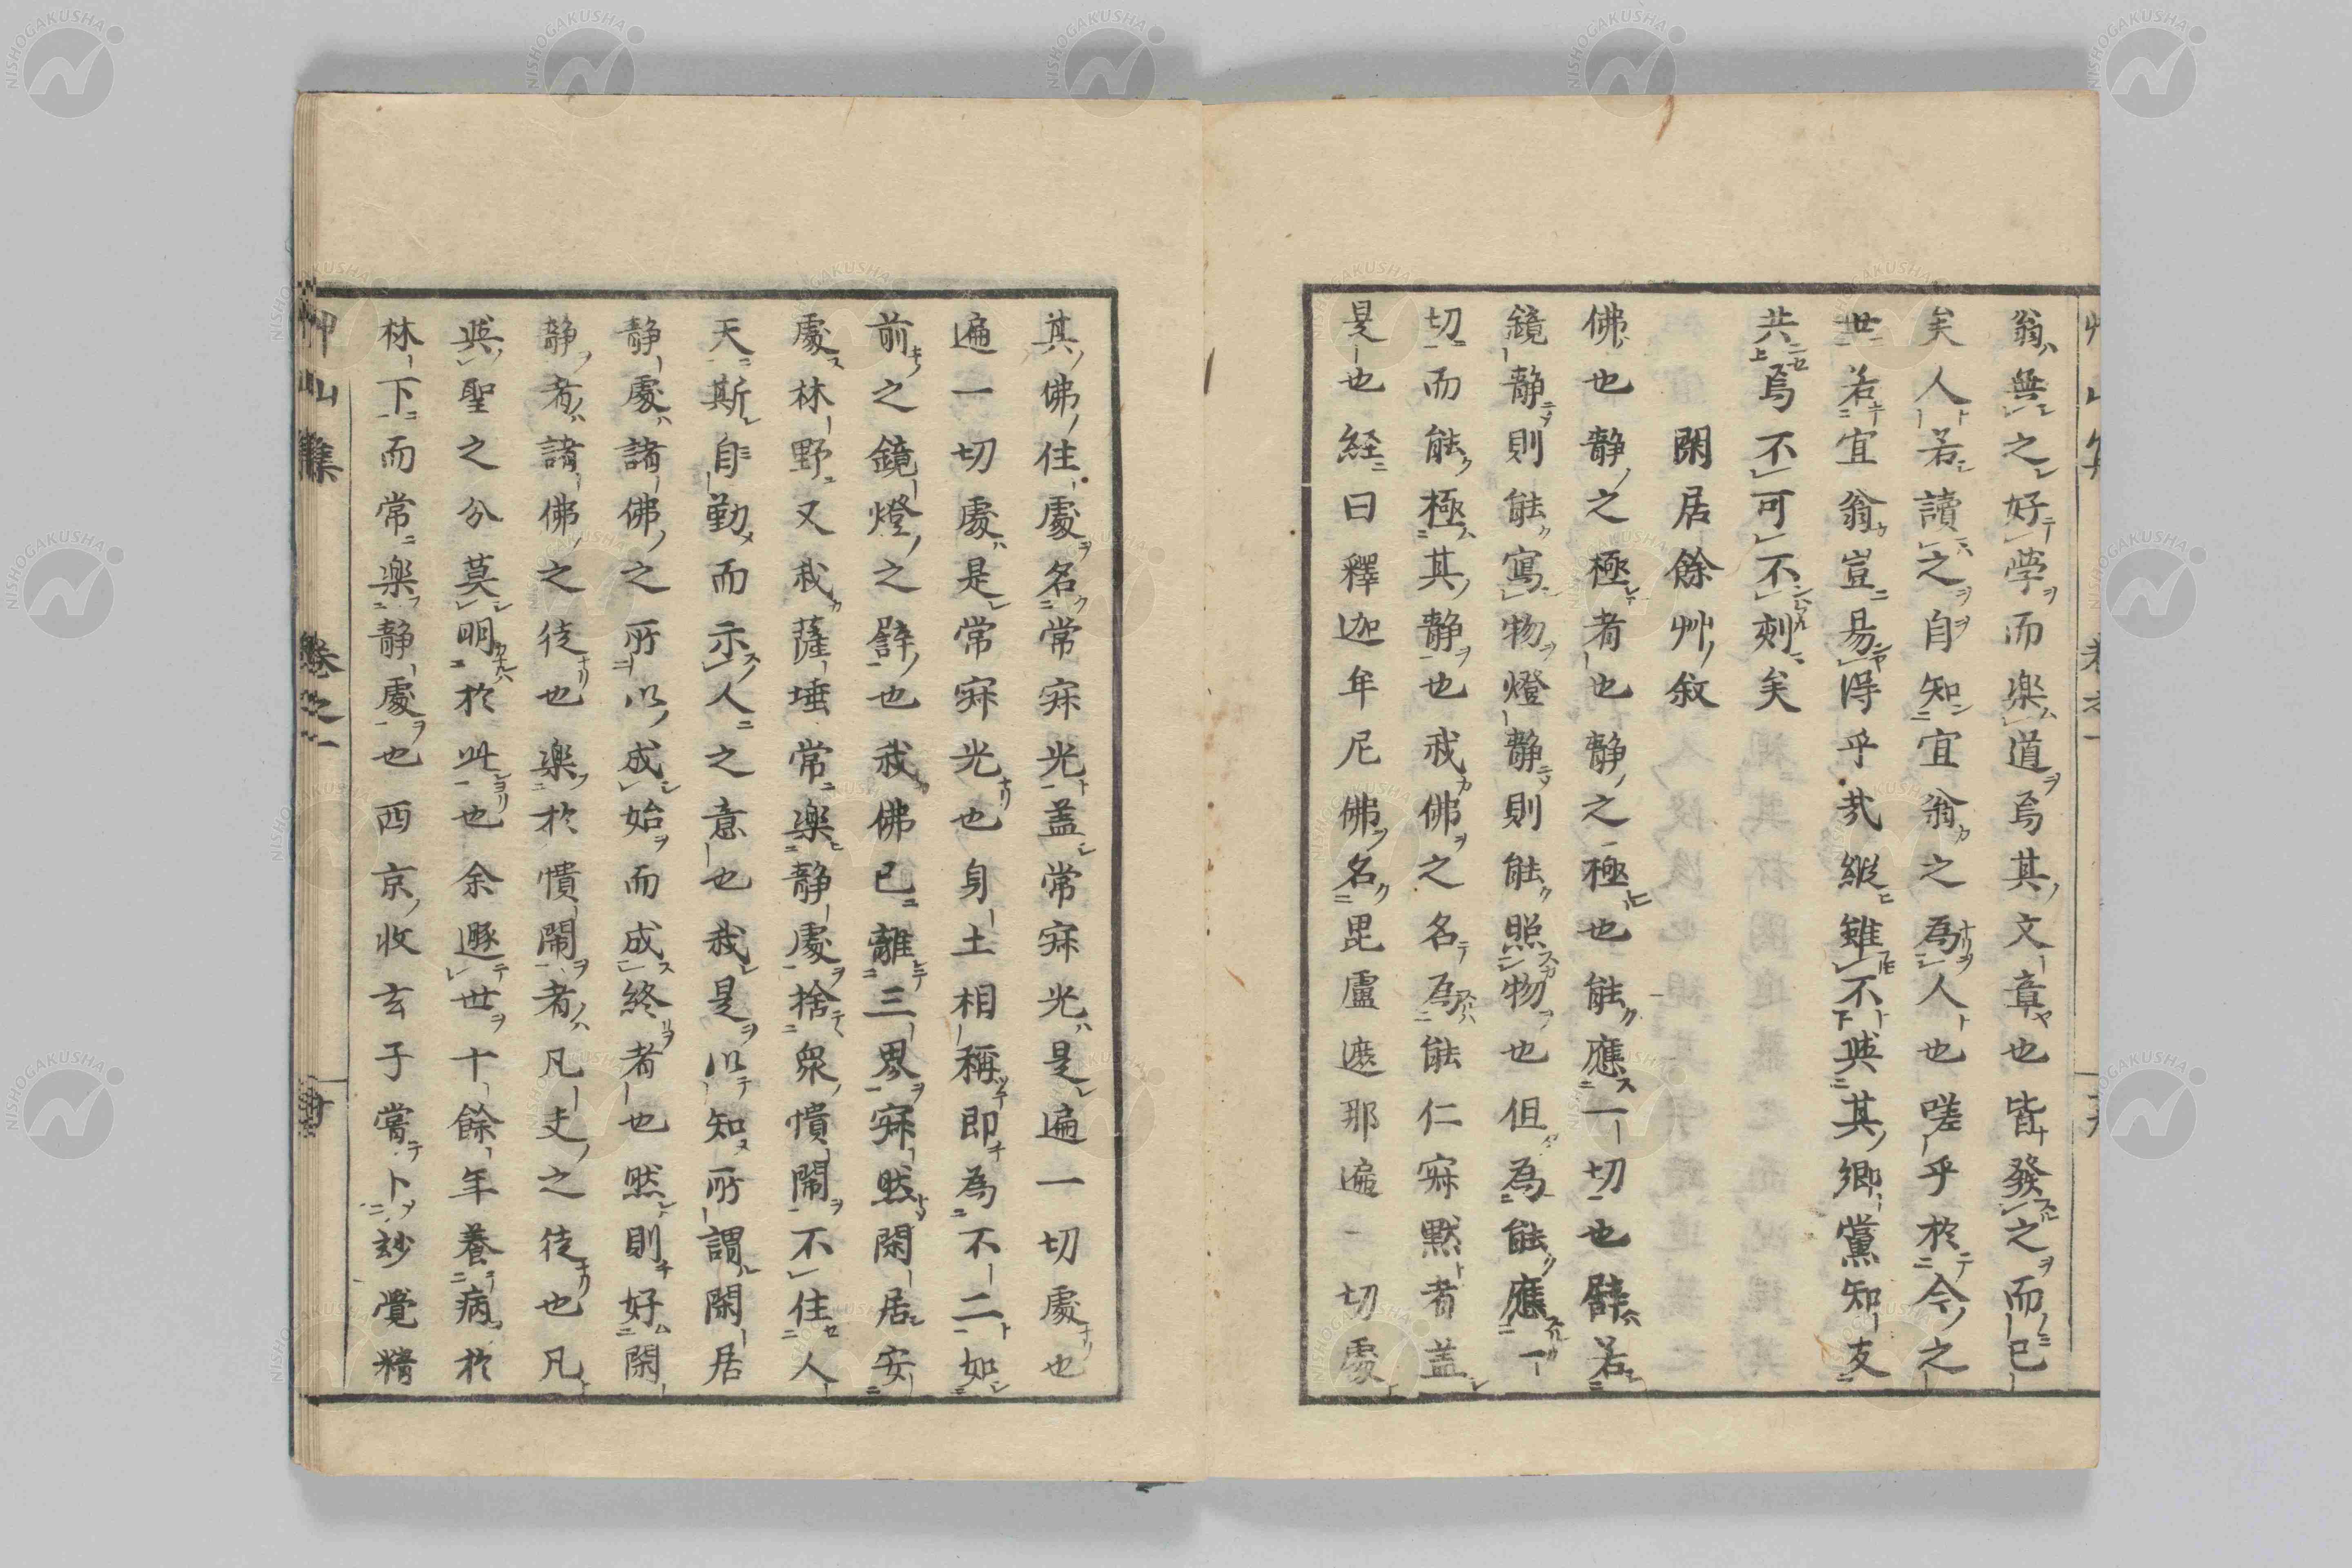 翁無之好學而楽道焉其文章也皆發之而已
矣人若讀之自知宜翁之為人也嗟乎於今之
世若宜翁豈易得乎哉縦雖不與其郷黨知友
共焉不可不刻矣
閑居餘艸叙
佛也静之極者也静之極也能應一切也譬若
鏡静則能寫物燈静則能照物也但為能應一
切而能極其静也我佛之名為能仁寂黙者盖
是也経曰釋迦牟尼佛名毘盧遮那遍一切處
其佛住處名常寂光盖常寂光是遍一切處也
遍一切處是常寂光也身土相稱即為不二如
前之鏡燈之譬也我佛已離三界寂然閑居安
處林野又我薩埵常楽静處捨衆憒閙不住人
天斯自勤而示人之意也我是以知所謂閑居
静處諸佛之所以成始而成終者也然則好閑
静者諸佛之徒也楽於憒閙者凡夫之徒也凡
與聖之分莫明於此也余遯世十餘年養病於
林下而常楽静處也西京收玄子嘗卜玅覺精
艸山集 巻之一